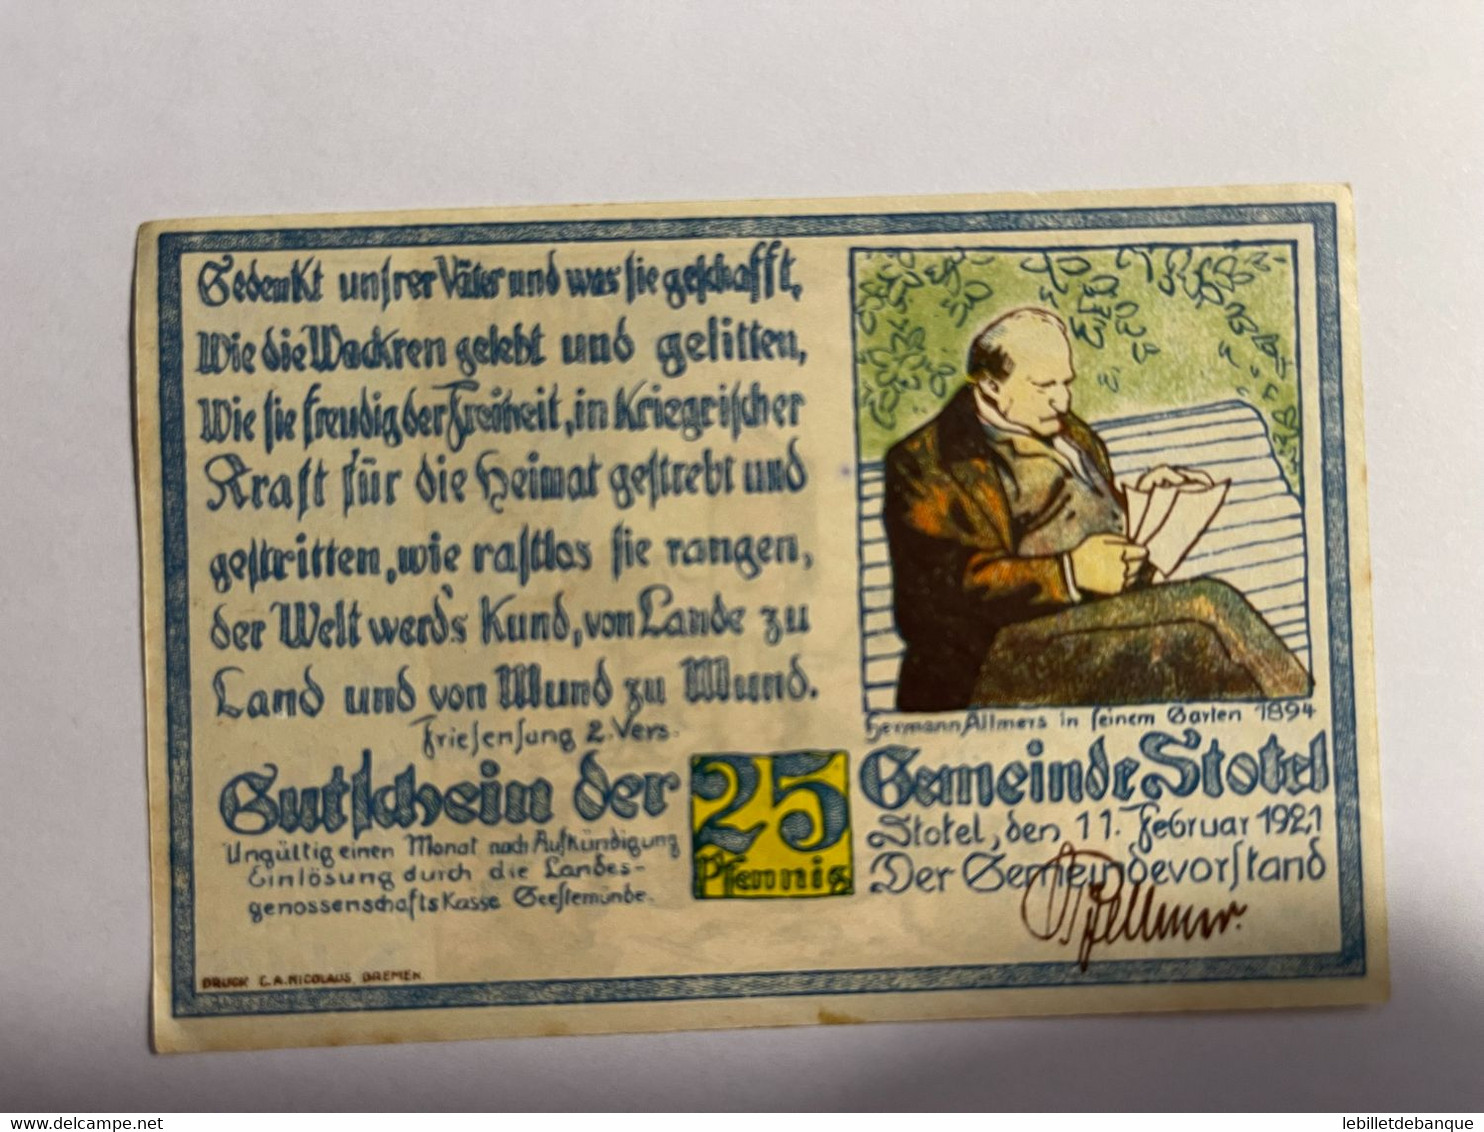 Gedenkt unsrer Väter und was sie geschafft,
Wie die Wackren gelebt und gelitten,
Wie sie freudig der Freiheit, in Kriegrischer
Kraft für die Heimat gestrebt und
gestritten, wie rastlos sie rangen,
der Welt werd's Kund, von Lande zu
Land und von Mund zu Mund.
Friesensung 2. Vers.
Hermann Allmers in seinem Garten 1894
Gutschein der 25 Pfennig Gemeinde Stotel
Ungültig einen Monat nach Aufkündigung
Einlösung durch die Landes-
genossenschafts Kasse Geestemünde.
Stotel, den 11. Februar 1921
Der Gemeindevorstand
DRUCK C.A. NICOLAUS BREMEN.
delcampe.net
lebilletdebanque